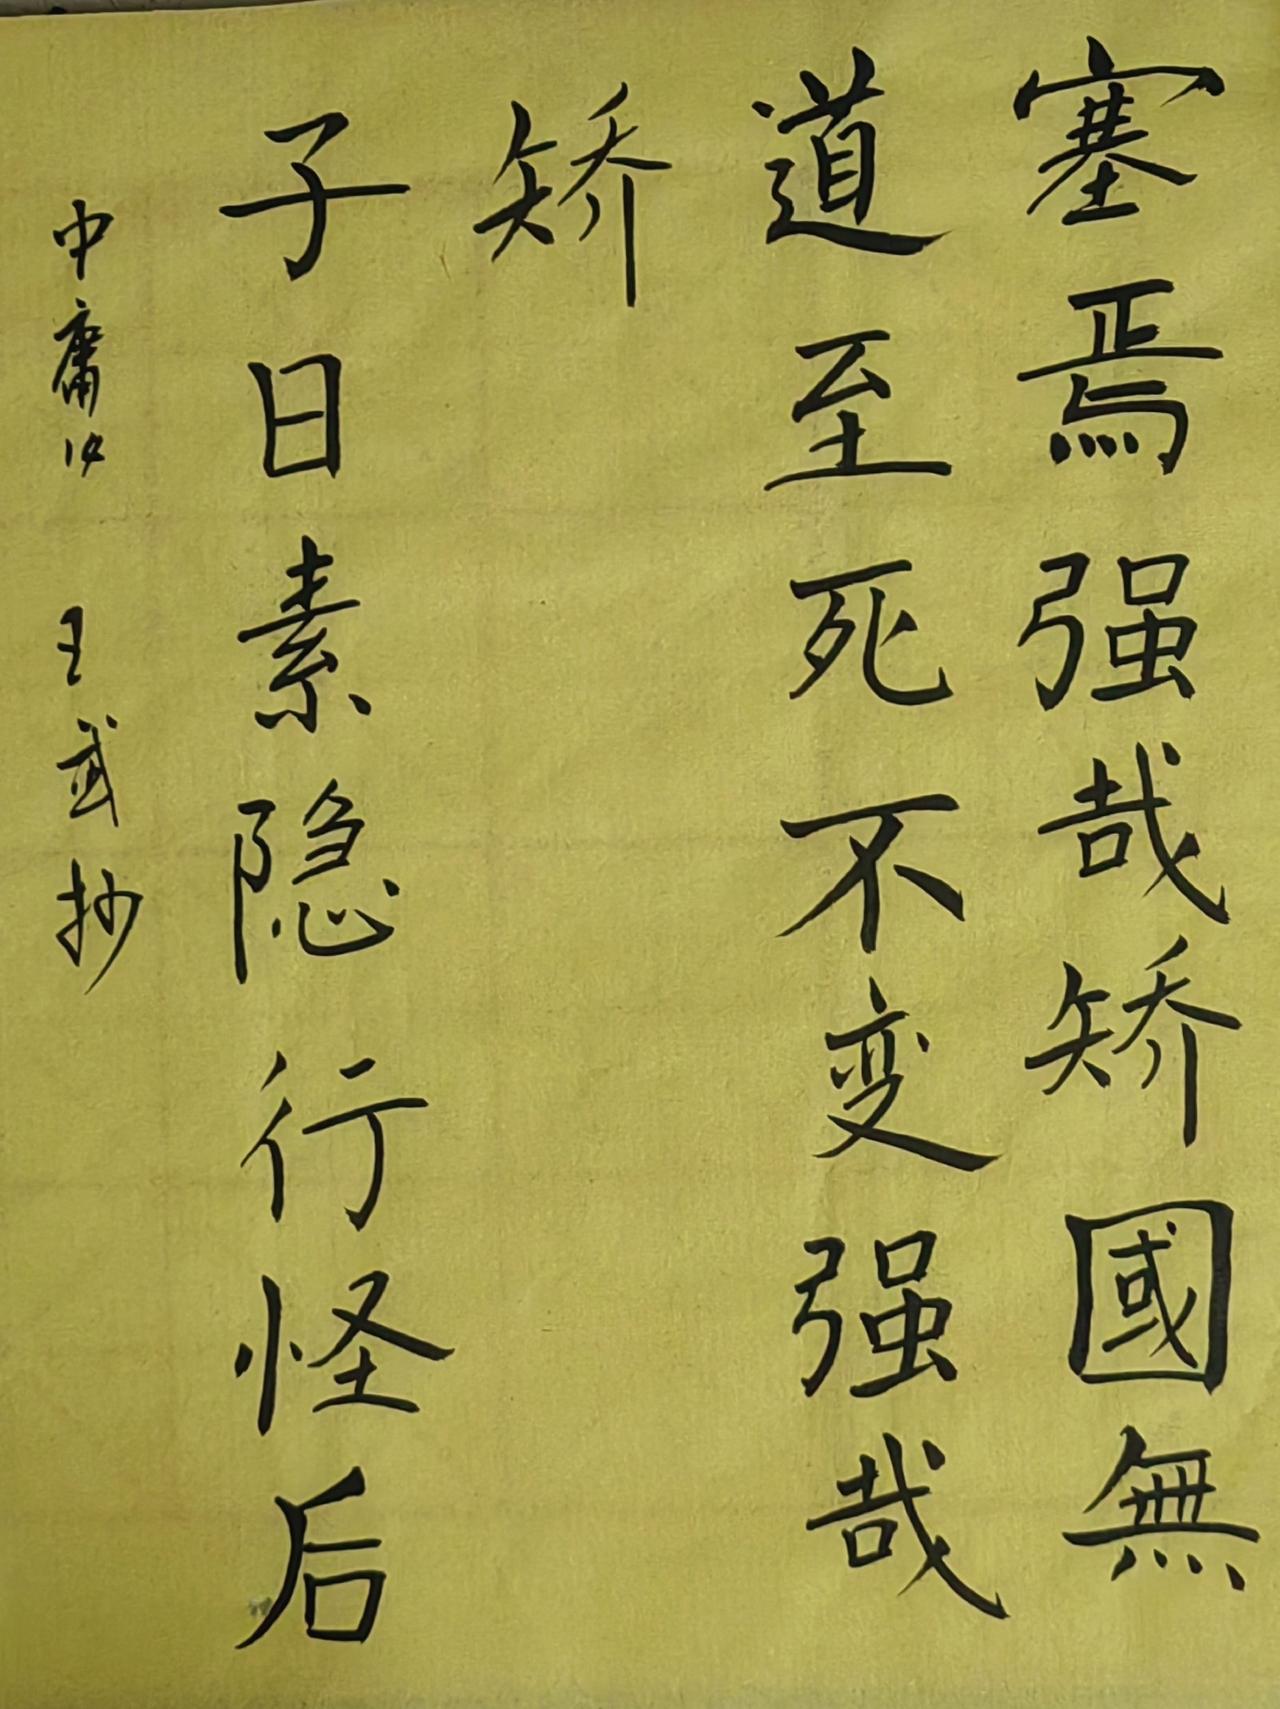 塞焉强哉矫國無
道至死不变强哉
矫
子曰素隐行怪后
中庸14 王武抄